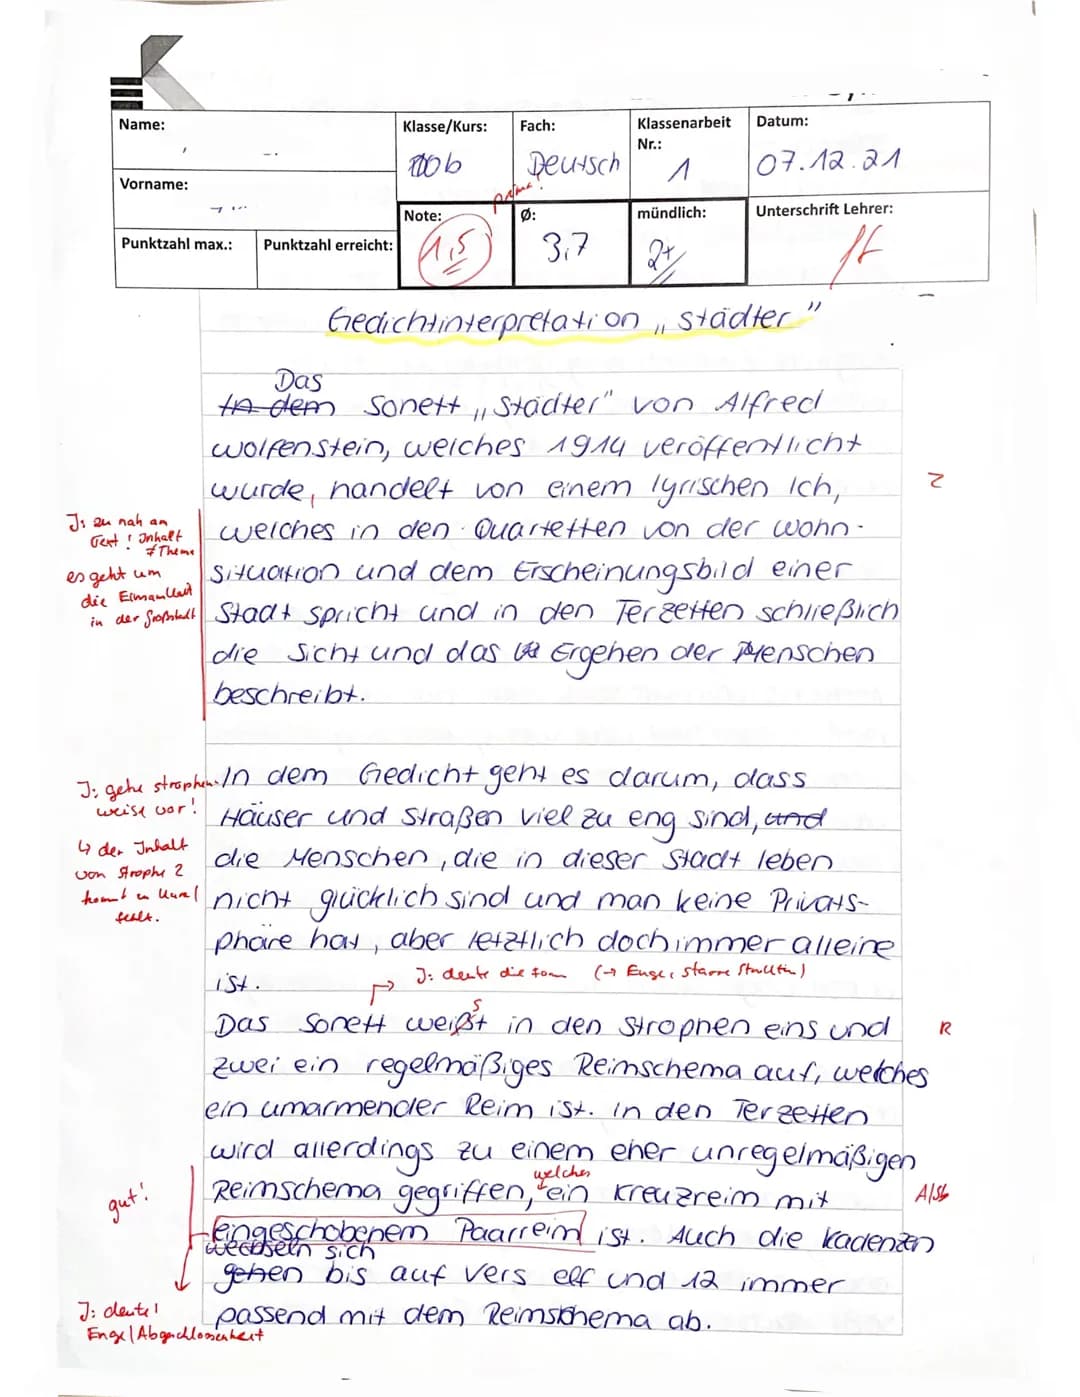 Name:
Vorname:
Punktzahl max.:
Punktzahl erreicht:
Klasse/Kurs:
10b
Note:
1,5
prima!
Fach:
Deutsch
Ø:
3,7
Klassenarbeit
Nr.:
1
mündlich:
2+
Datum:
07.12.21
Unterschrift Lehrer:
Gedichtinterpretation „Städter"
Das
In dem Sonett „Städter" von Alfred
Wolfenstein, welches 1914 veröffentlicht
wurde, handelt von einem lyrischen Ich,
Z
welches in den Quartetten von der Wohn-
situation und dem Erscheinungsbild einer
Stadt spricht und in den Terzetten schließlich
die Sicht und das Ergehen der Menschen
beschreibt.
J: zu nah an
Text! Inhalt
≠ Thema
es geht um
die Einsamkeit
in der Großstadt
In dem Gedicht geht es darum, dass
Häuser und Straßen viel zu eng sind, und
die Menschen, die in dieser Stadt leben
nicht glücklich sind und man keine Privats-
phäre hat, aber letztlich doch immer alleine
ist.
J: gehe strophen-
weise vor!
↳ der Inhalt
von Strophe 2
kommt zu kurz/
fehlt.
J: deute die Form (→ Enge, starre Struktur)
s
Das Sonett weißt in den Strophen eins und
R
zwei ein regelmäßiges Reimschema auf, welches
ein umarmender Reim ist. In den Terzetten
wird allerdings zu einem eher unregelmäßigen
welches
Reimschema gegriffen, ein Kreuzreim mit
A/Sb
eingeschobenem Paarreim ist. Auch die Kadenzen
wechseln sich
gehen bis auf Vers elf und 12 immer
passend mit dem Reimschema ab.
gut!
J: deute!
Enge/Abgeschlossenheit